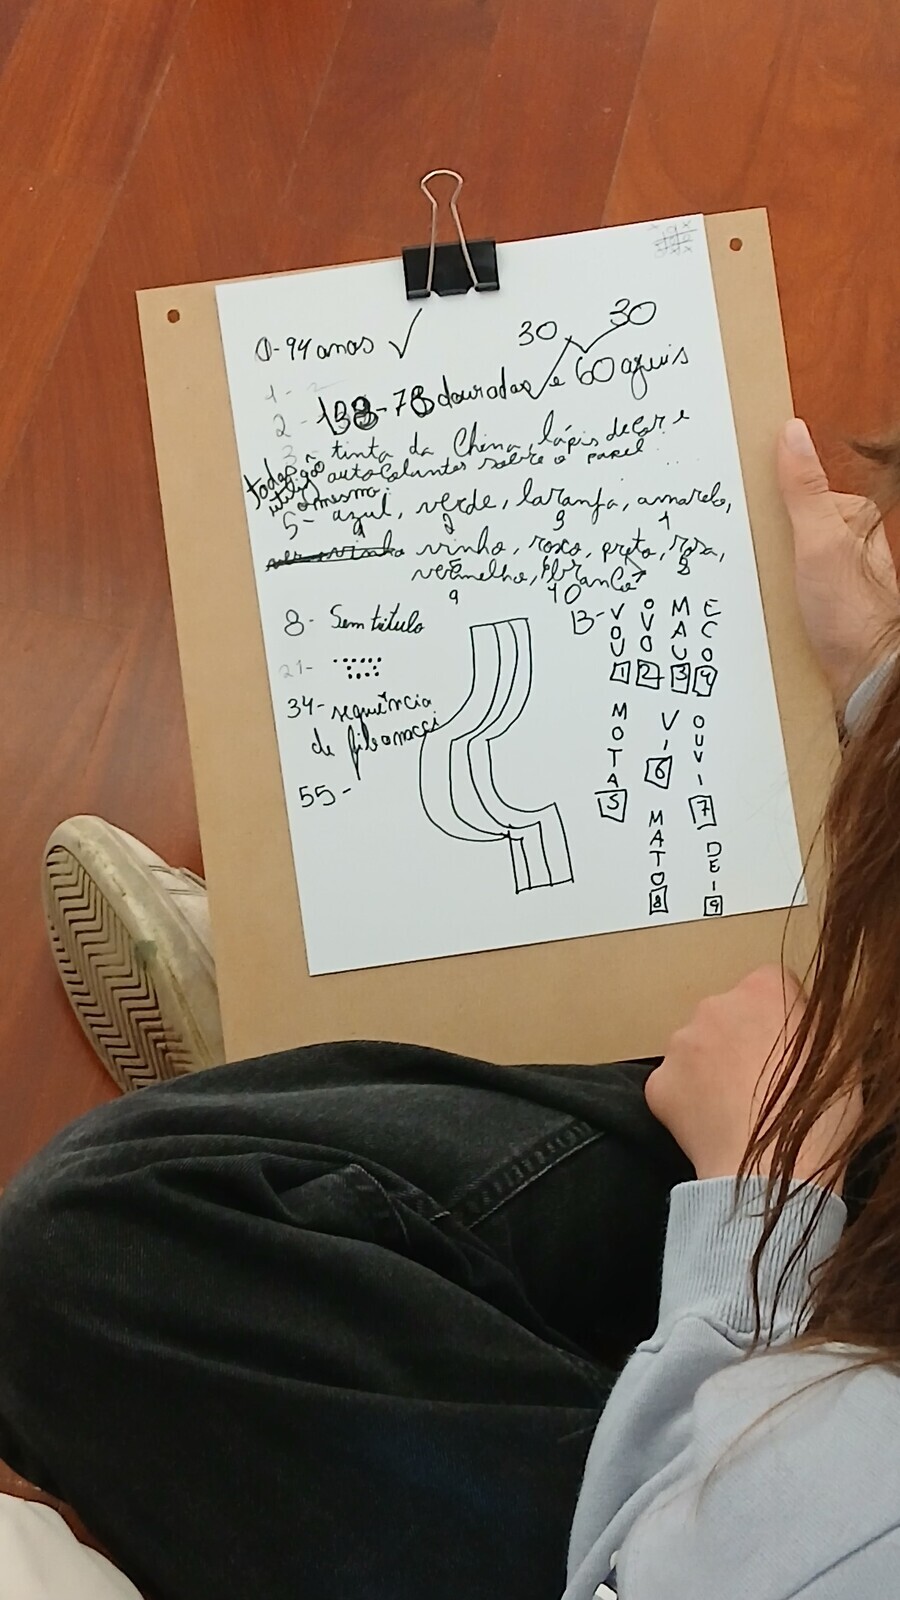 0- 94 anos
30 30
1-
2- 138- 78 dourados e 60 azuis
3- tinta da China, lápis de cor e
autocolantes sobre o papel
todas
o mesmo.
5- azul, verde, laranja, amarelo,
1 2 3 4
vinho, roxo, preto, rosa,
5 6 7 8
vermelho, branco
9 10
8- Sem título
21-
34- sequência
de fibonacci
55-
13-
VOU 1
OVO 2
MAU 3
ECO 4
MOTA 5
VI 6
OUVI 7
MATO 8
DEI 9